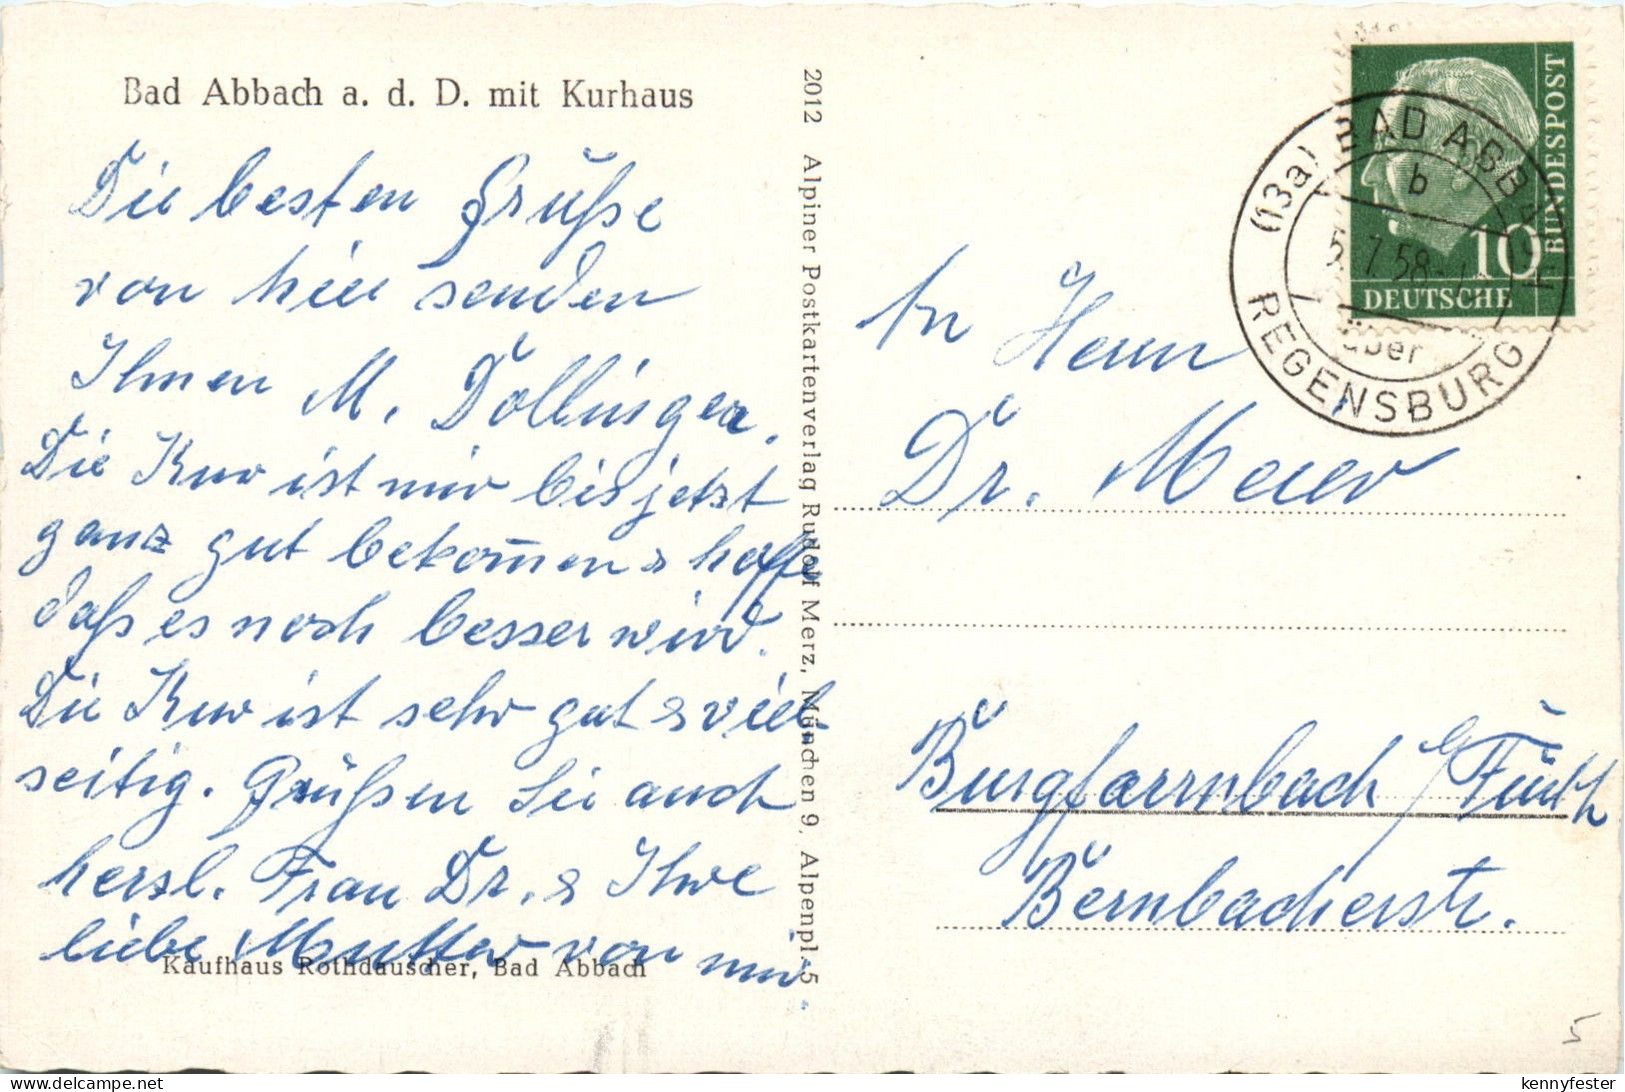 Bad Abbach a. d. D. mit Kurhaus
Die besten Grüße
von hier senden
Ihnen M. Dollinger.
Die Kur ist mir bis jetzt
ganz gut bekom̄en & hoffe
daß es noch besser wird.
Die Kur ist sehr gut & viel
seitig. Grüßen Sie auch
herzl. Frau Dr. & Ihre
liebe Mutter von mir.
Kaufhaus Rothdauscher, Bad Abbach
2012 Alpiner Postkartenverlag Rudolf Merz, München 9. Alpenpl. 5
DEUTSCHE BUNDESPOST
10
(13a) BAD ABBACH
b
5.7.58
über
REGENSBURG
An Herrn
Dr. Meier
Burgfarrnbach b/Fürth
Bernbacherstr.
5
kennyfester